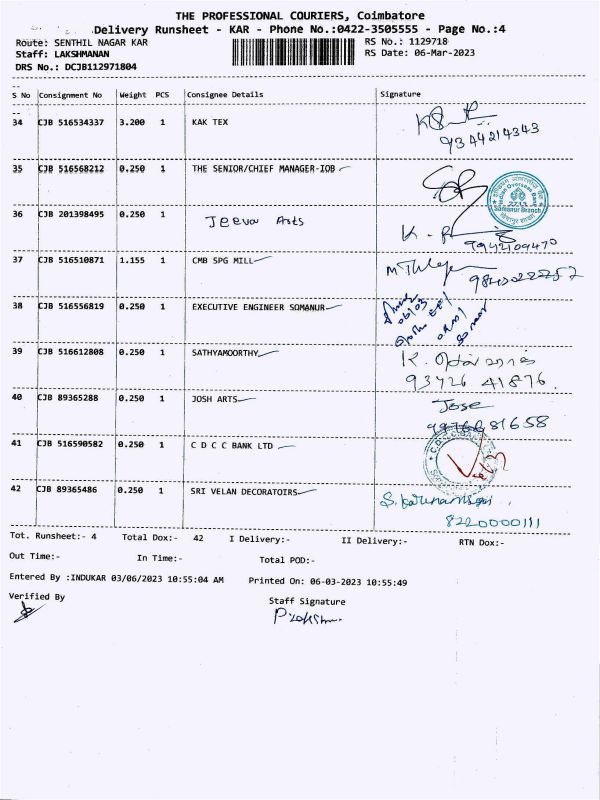 THE PROFESSIONAL COURIERS, Coimbatore
Delivery Runsheet - KAR - Phone No.:0422-3505555 - Page No.:4
Route: SENTHIL NAGAR KAR RS No.: 1129718
Staff: LAKSHMANAN RS Date: 06-Mar-2023
DRS No.: DCJB112971804
S No Consignment No Weight PCS Consignee Details Signature
34 CJB 516534337 3.200 1 KAK TEX
9344214343
35 CJB 516568212 0.250 1 THE SENIOR/CHIEF MANAGER-IOB
Indian Overseas Bank
2713
Somanur Branch
36 CJB 201398495 0.250 1 Jeeva Arts
9942109470
37 CJB 516510871 1.155 1 CMB SPG MILL
38 CJB 516556819 0.250 1 EXECUTIVE ENGINEER SOMANUR
39 CJB 516612808 0.250 1 SATHYAMOORTHY
93426 41876
40 CJB 89365288 0.250 1 JOSH ARTS
Jose
41 CJB 516590582 0.250 1 C D C C BANK LTD
42 CJB 89365486 0.250 1 SRI VELAN DECORATOIRS
8220000111
Tot. Runsheet:- 4 Total Dox:- 42 I Delivery:- II Delivery:- RTN Dox:-
Out Time:- In Time:- Total POD:-
Entered By :INDUKAR 03/06/2023 10:55:04 AM Printed On: 06-03-2023 10:55:49
Verified By Staff Signature